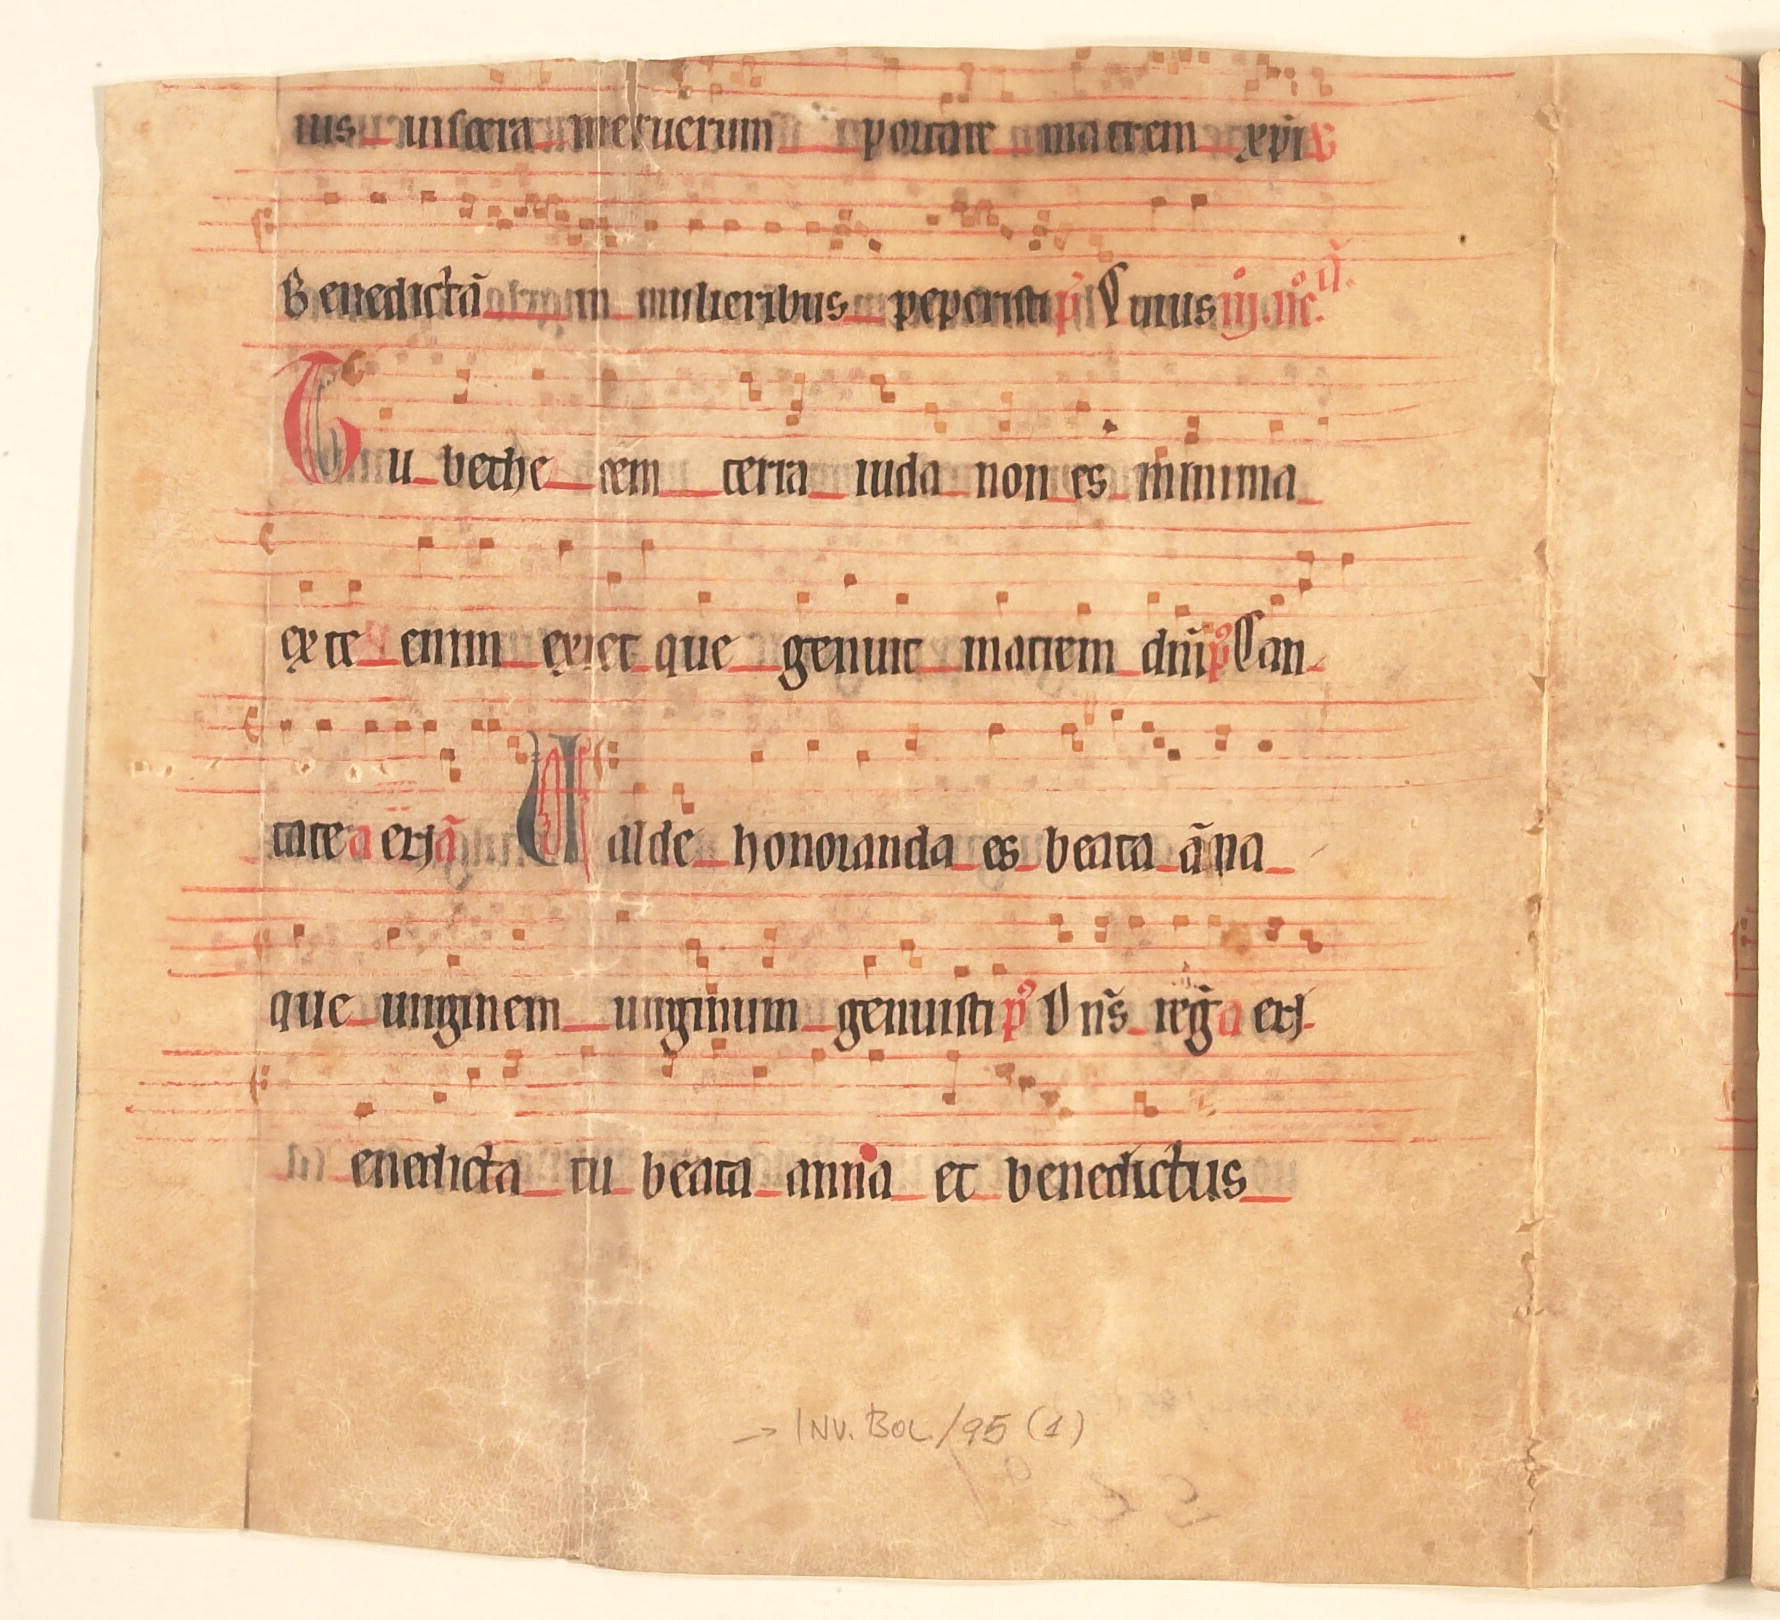 ius uiscera meruerunt portare matrem xp̄i
Benedictā in mulieribus peperisti p̄ Vnius iij nō.
Tu bethleem terra iuda non es minima
ex te enim exiet que genuit matrem dn̄i p̄ Can
tate a eria Valde honoranda es beata āna
que uirginem uirginum genuisti p̄ Dn̄s reḡ a eri
enedicta tu beata anna et benedictus
→ INV. BOL/95 (1)